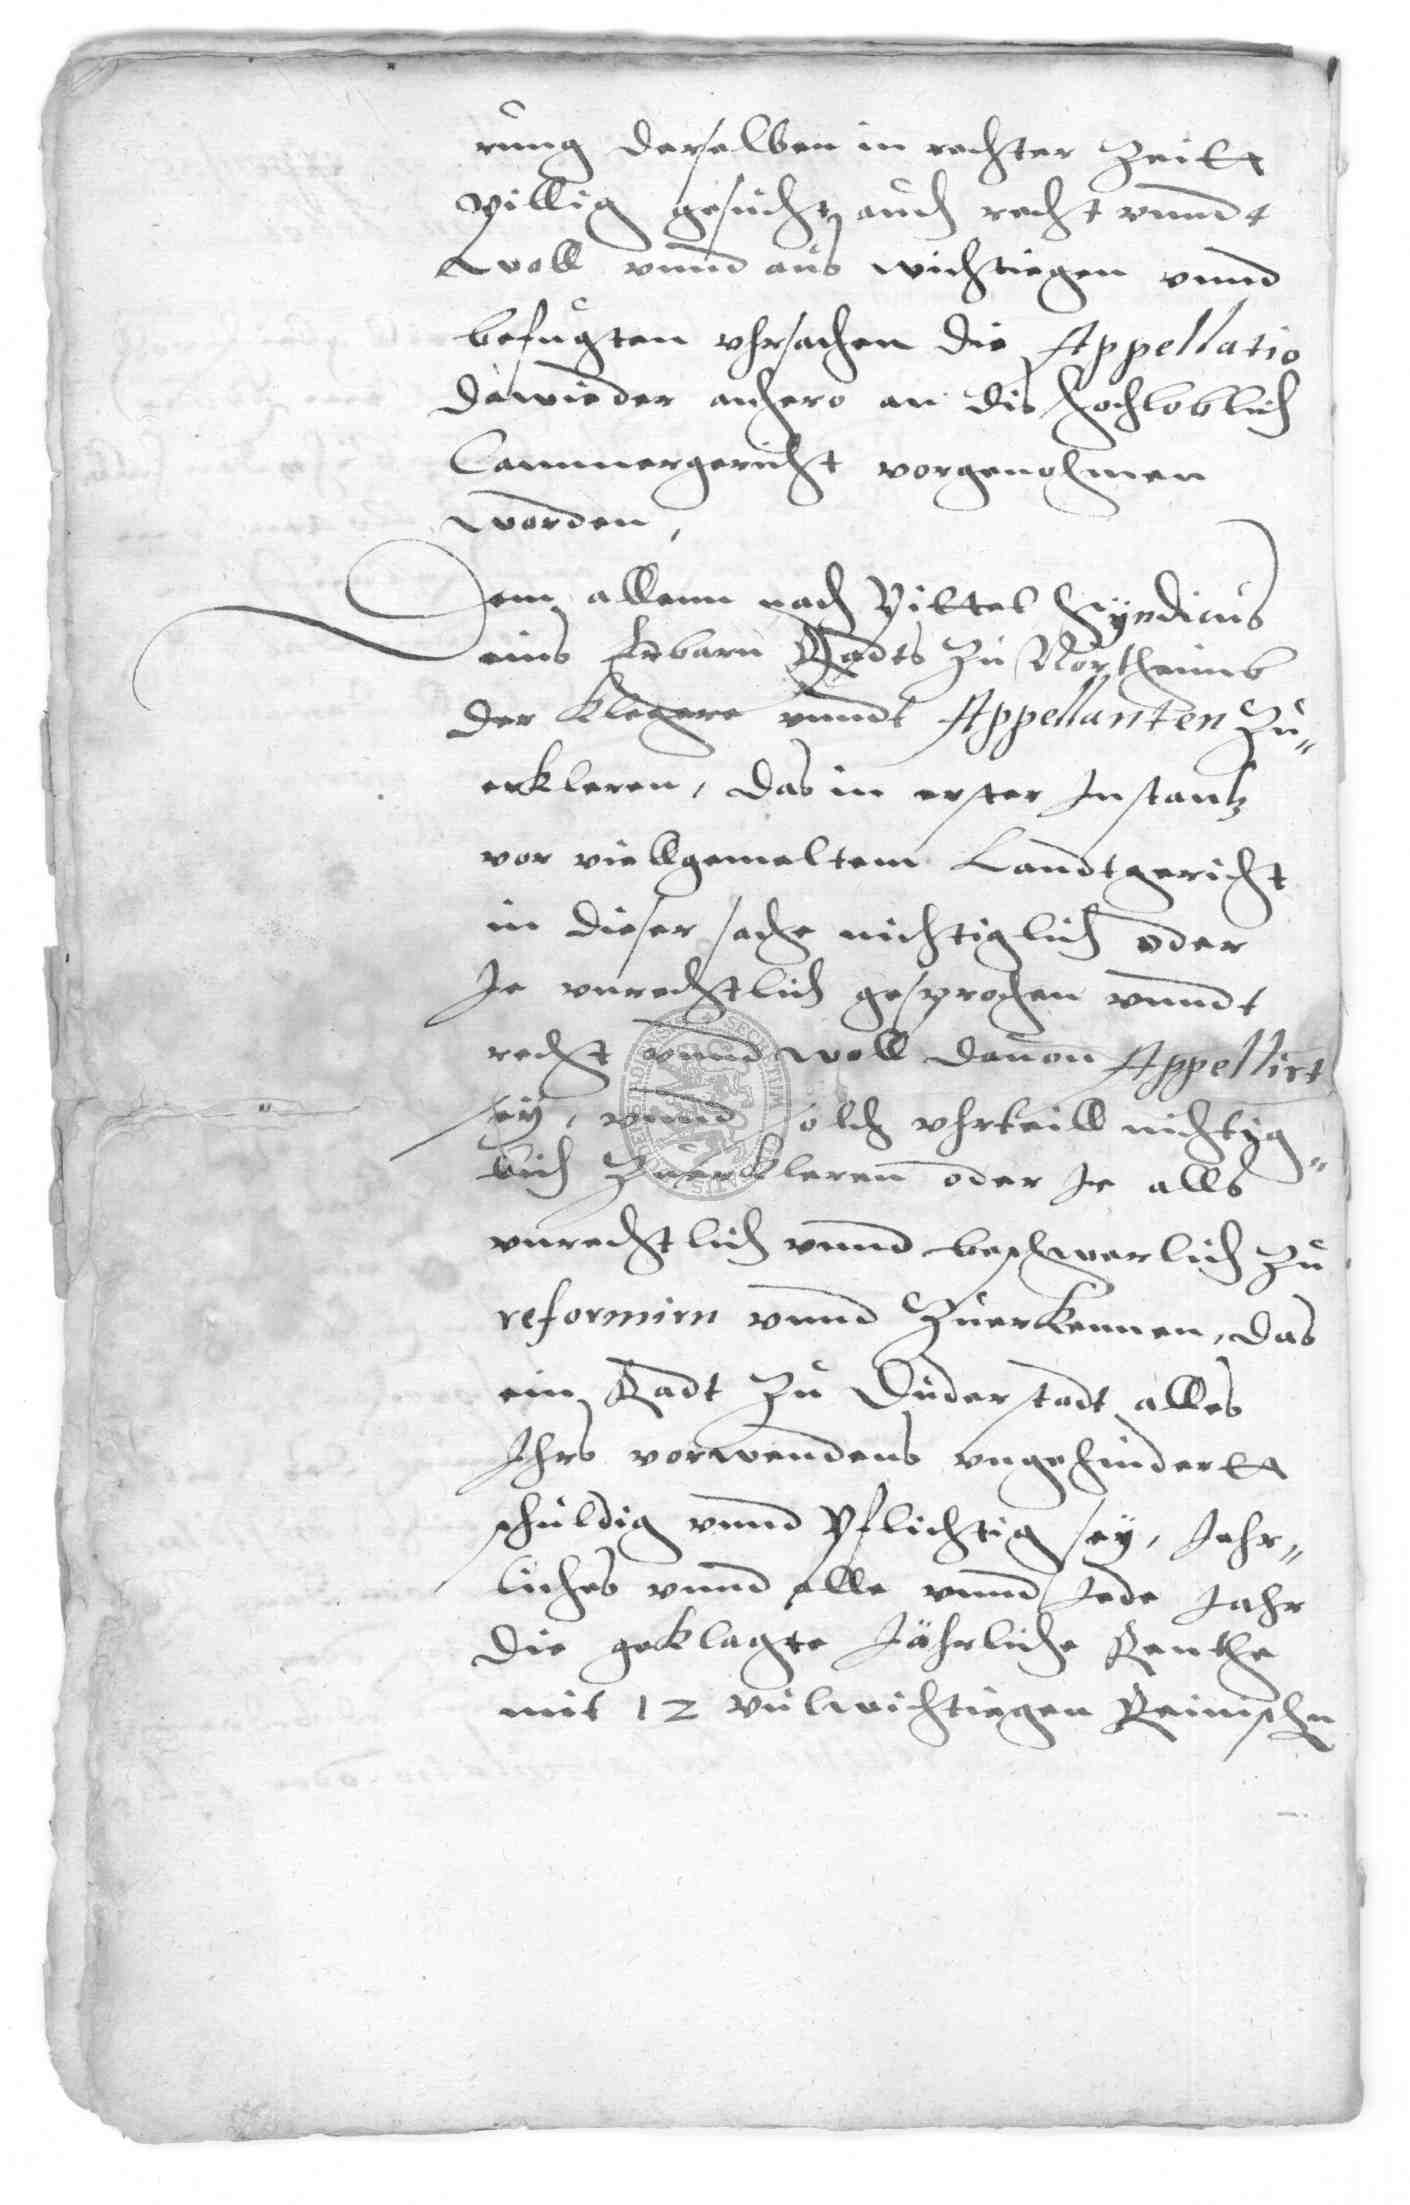 rung derselben in rechter Zeitt
pillig gesucht, auch recht vnndt
woll vnnd aus wichtiegen vnnd
befugten vhrsachen die Appellatio
dawieder anhero an dis hochloblich
Cammergericht vorgenohmen
worden,
Dem allenn nach Pittet Syndicus
eins Erbarn Radts Zu Northeimb
der Klegere vnndt Appellanten Zu„
erkleren, das in erster Instantz
vor viellgemeltem Landtgericht
in dieser sache nichtiglich oder
Je vnrechtlich gesprochen vnndt
recht vnnd woll dauon Appellirt
sey, vnnd solch vhrteill nichtig„
lich Zuerkleren oder Je alls
vnrechtlich vnnd beschwerlich Zu
reformirn vnnd Zuerkennen, das
ein Radt Zu Duderstadt alles
Ihrs vorwendens vngehindertt
schuldig vnnd Pflichtig sey, Jehr„
liches vnnd alle vnnd Jede Jahr
die geklagte Jährliche Renthe
mit 12 vulwichtiegen Reinischn